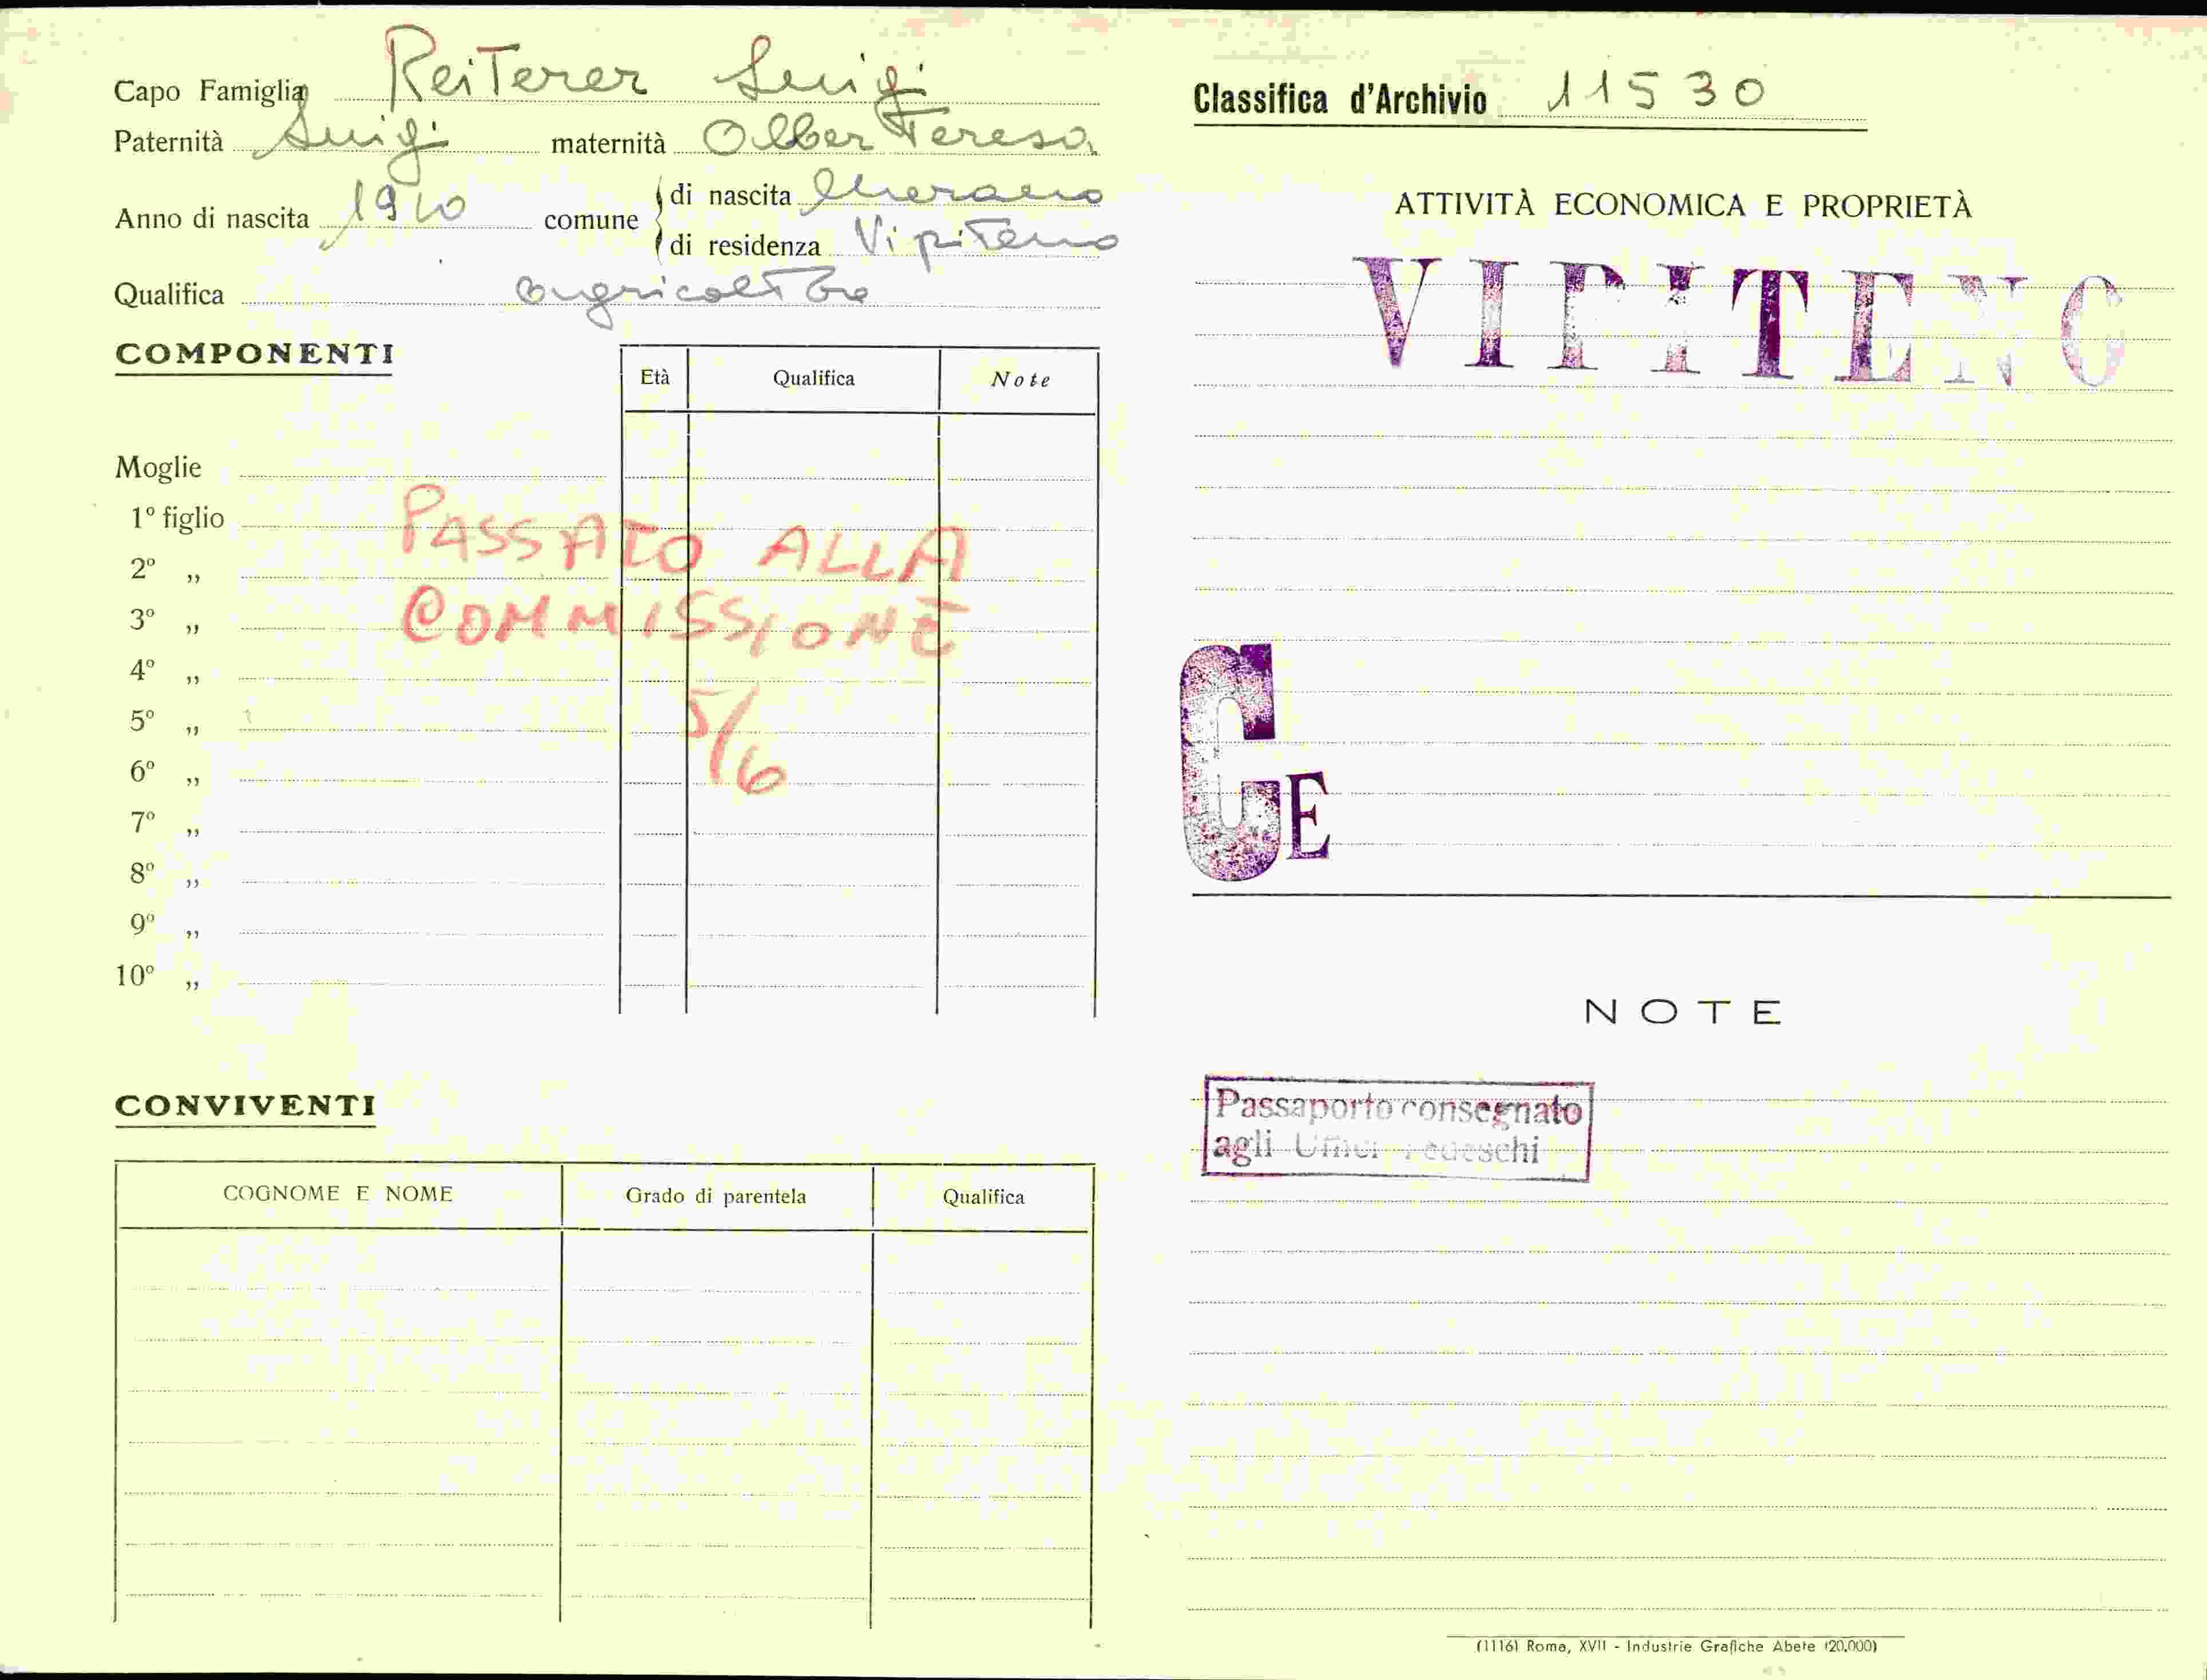 Capo Famiglia Reiterer Luigi
Paternità Luigi maternità Olber Teresa
Anno di nascita 1910 comune di nascita Merano
di residenza Vipiteno
Qualifica agricoltore
COMPONENTI
Età Qualifica Note
Moglie
1º figlio
2º „
3º „
4º „
5º „
6º „
7º „
8º „
9º „
10º „
PASSATO ALLA
COMMISSIONE
5/6
CONVIVENTI
COGNOME E NOME Grado di parentela Qualifica
Classifica d'Archivio 11530
ATTIVITÀ ECONOMICA E PROPRIETÀ
VIPITENO
CE
NOTE
Passaporto consegnato
agli Uffici Tedeschi
(1116) Roma, XVII - Industrie Grafiche Abete (20.000)